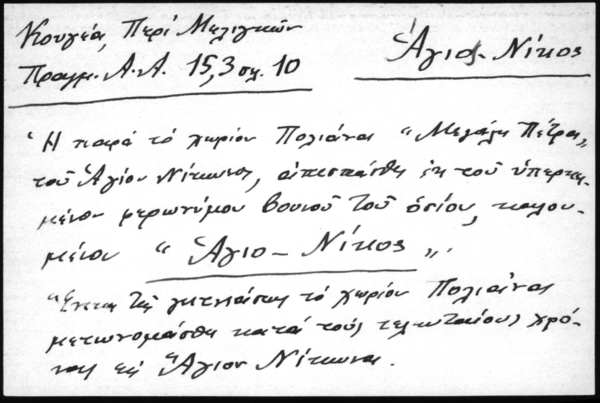 Κουγέα, Περὶ Μελιγκῶν
Πραγμ. Α.Α. 15,3 σελ. 10
Ἅγιο-Νίκος
Ἡ παρὰ τὸ χωρίον Πολιάνα "Μεγάλη Πέτρα"
τοῦ Ἁγίου Νίκωνος, ἀπεσπάσθη ἐκ τοῦ ὑπερκει-
μένου φερωνύμου βουνοῦ τοῦ ὁσίου, καλου-
μένου "Ἅγιο-Νίκος".
Ἕνεκα τῆς γειτνιάσεως τὸ χωρίον Πολιάνα
μετωνομάσθη κατὰ τοὺς τελευταίους χρό-
νους εἰς Ἅγιον Νίκωνα.